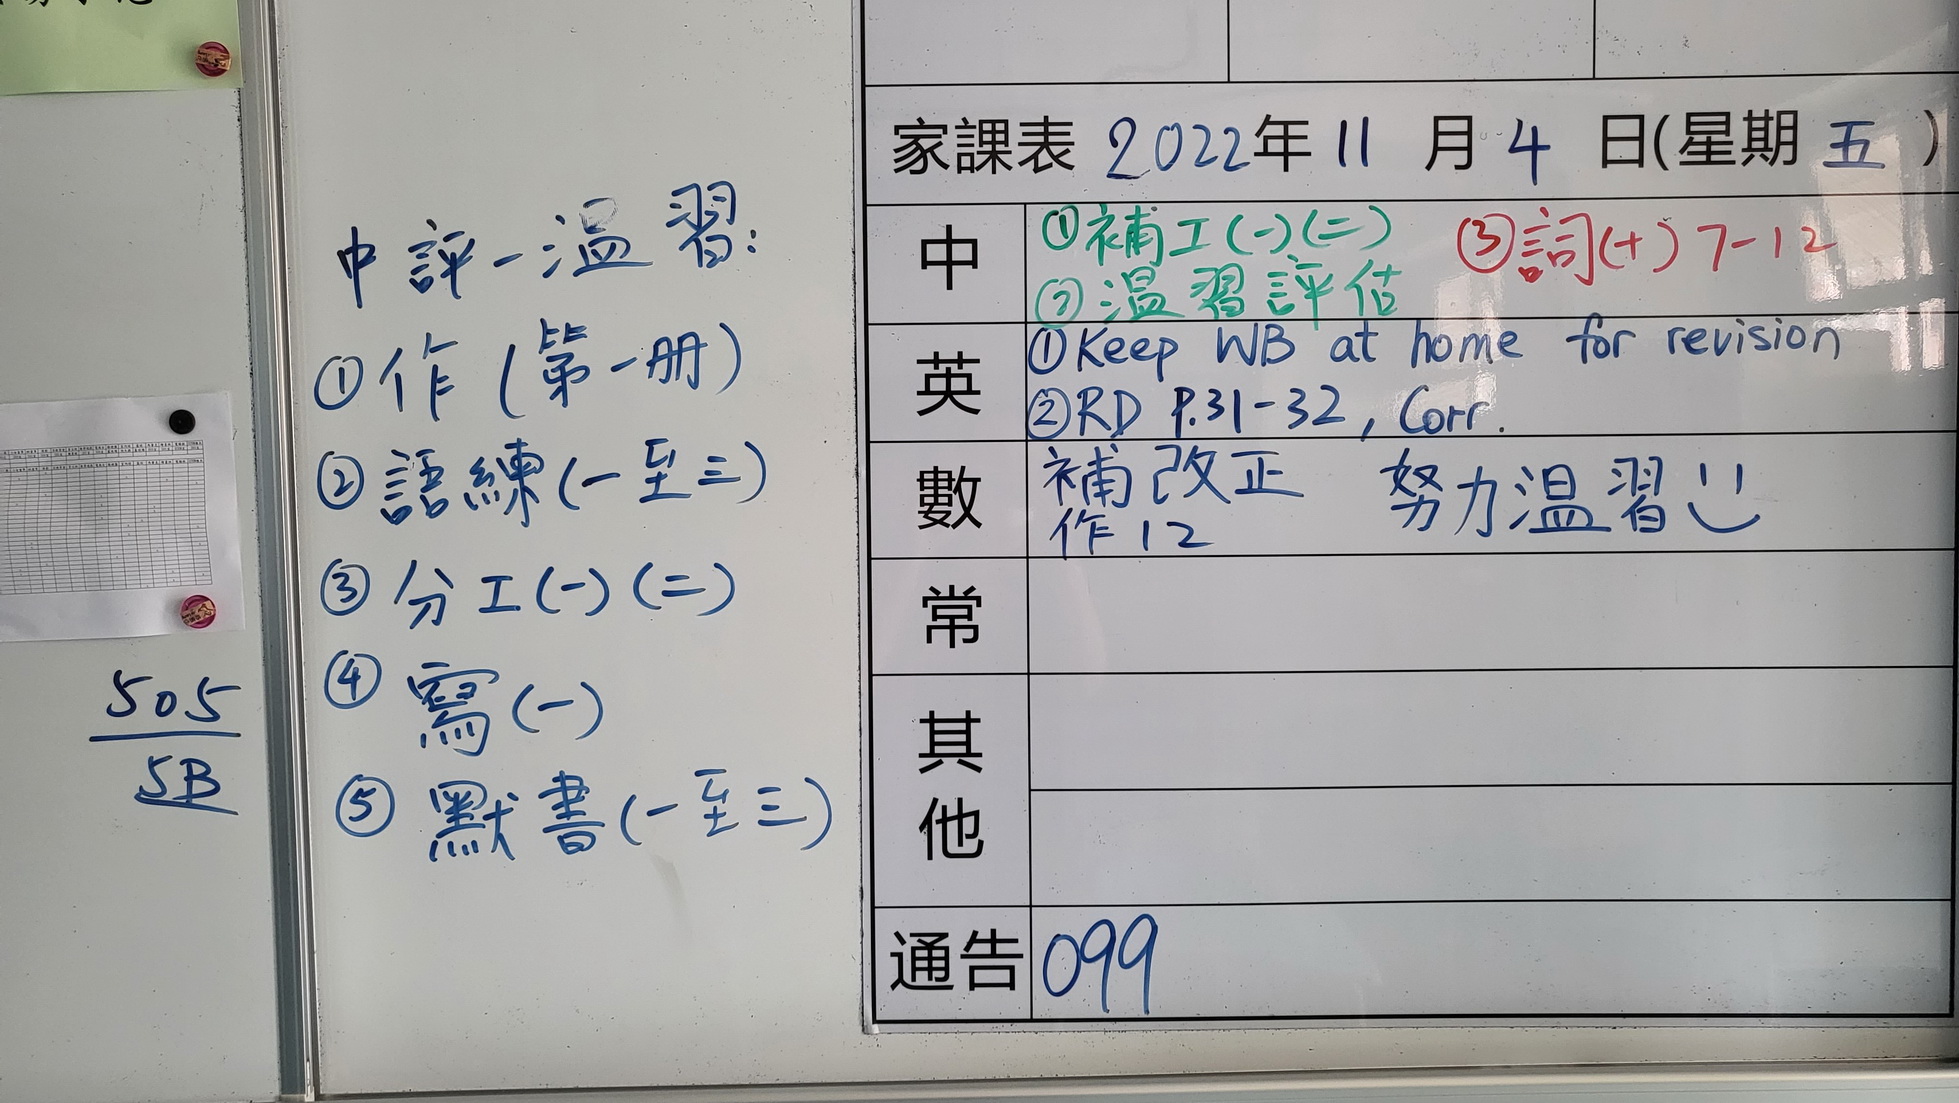 中評-温習:
①作(第一册)
②語練(一至三)
③分工(一)(二)
④寫(一)
⑤默書(一至三)
505
5B
家課表 2022年11月4日(星期五)
中
①補工(一)(二) ③詞(十)7-12
②温習評估
英
①Keep WB at home for revision
②RD P.31-32, Corr.
數
補改正 努力温習
作12
常
其他
通告
099